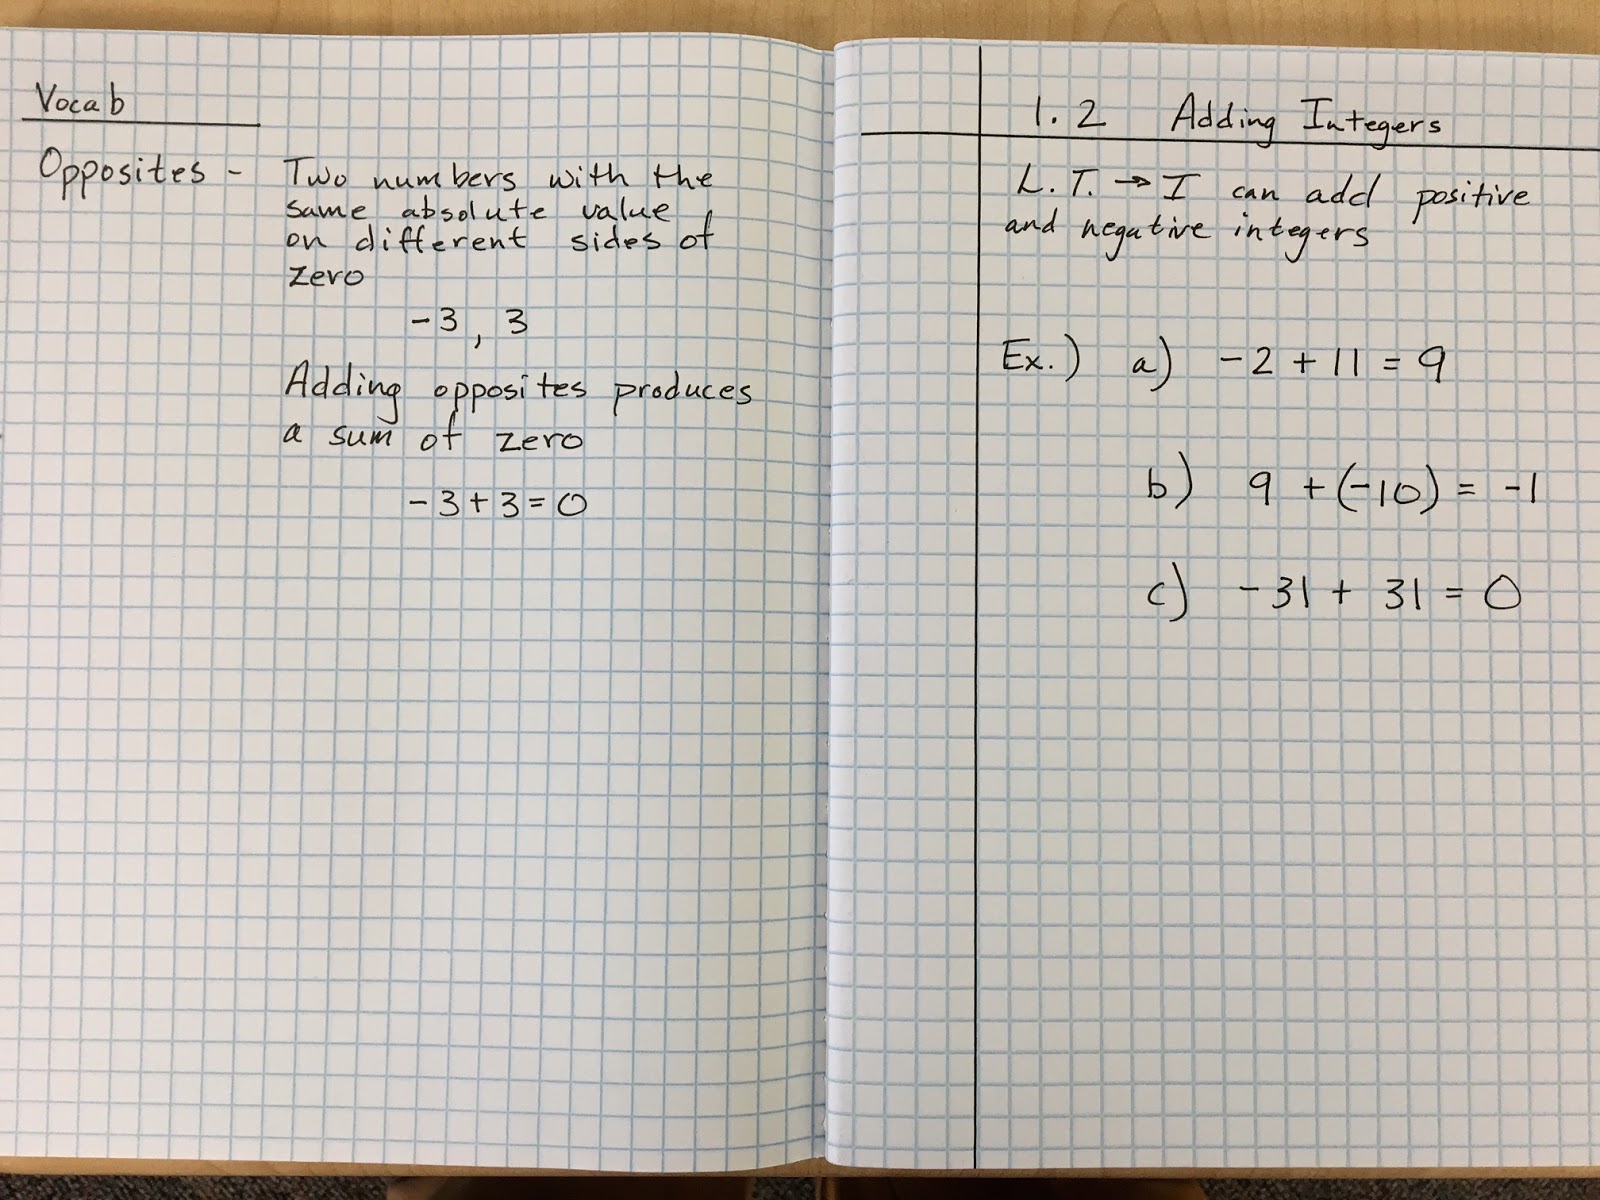 Vocab
Opposites - Two numbers with the
same absolute value
on different sides of
zero
-3, 3
Adding opposites produces
a sum of zero
-3+3=0
1.2 Adding Integers
L.T. → I can add positive
and negative integers
Ex.) a) -2+11=9
b) 9 +(-10) = -1
c) -31 + 31 = 0